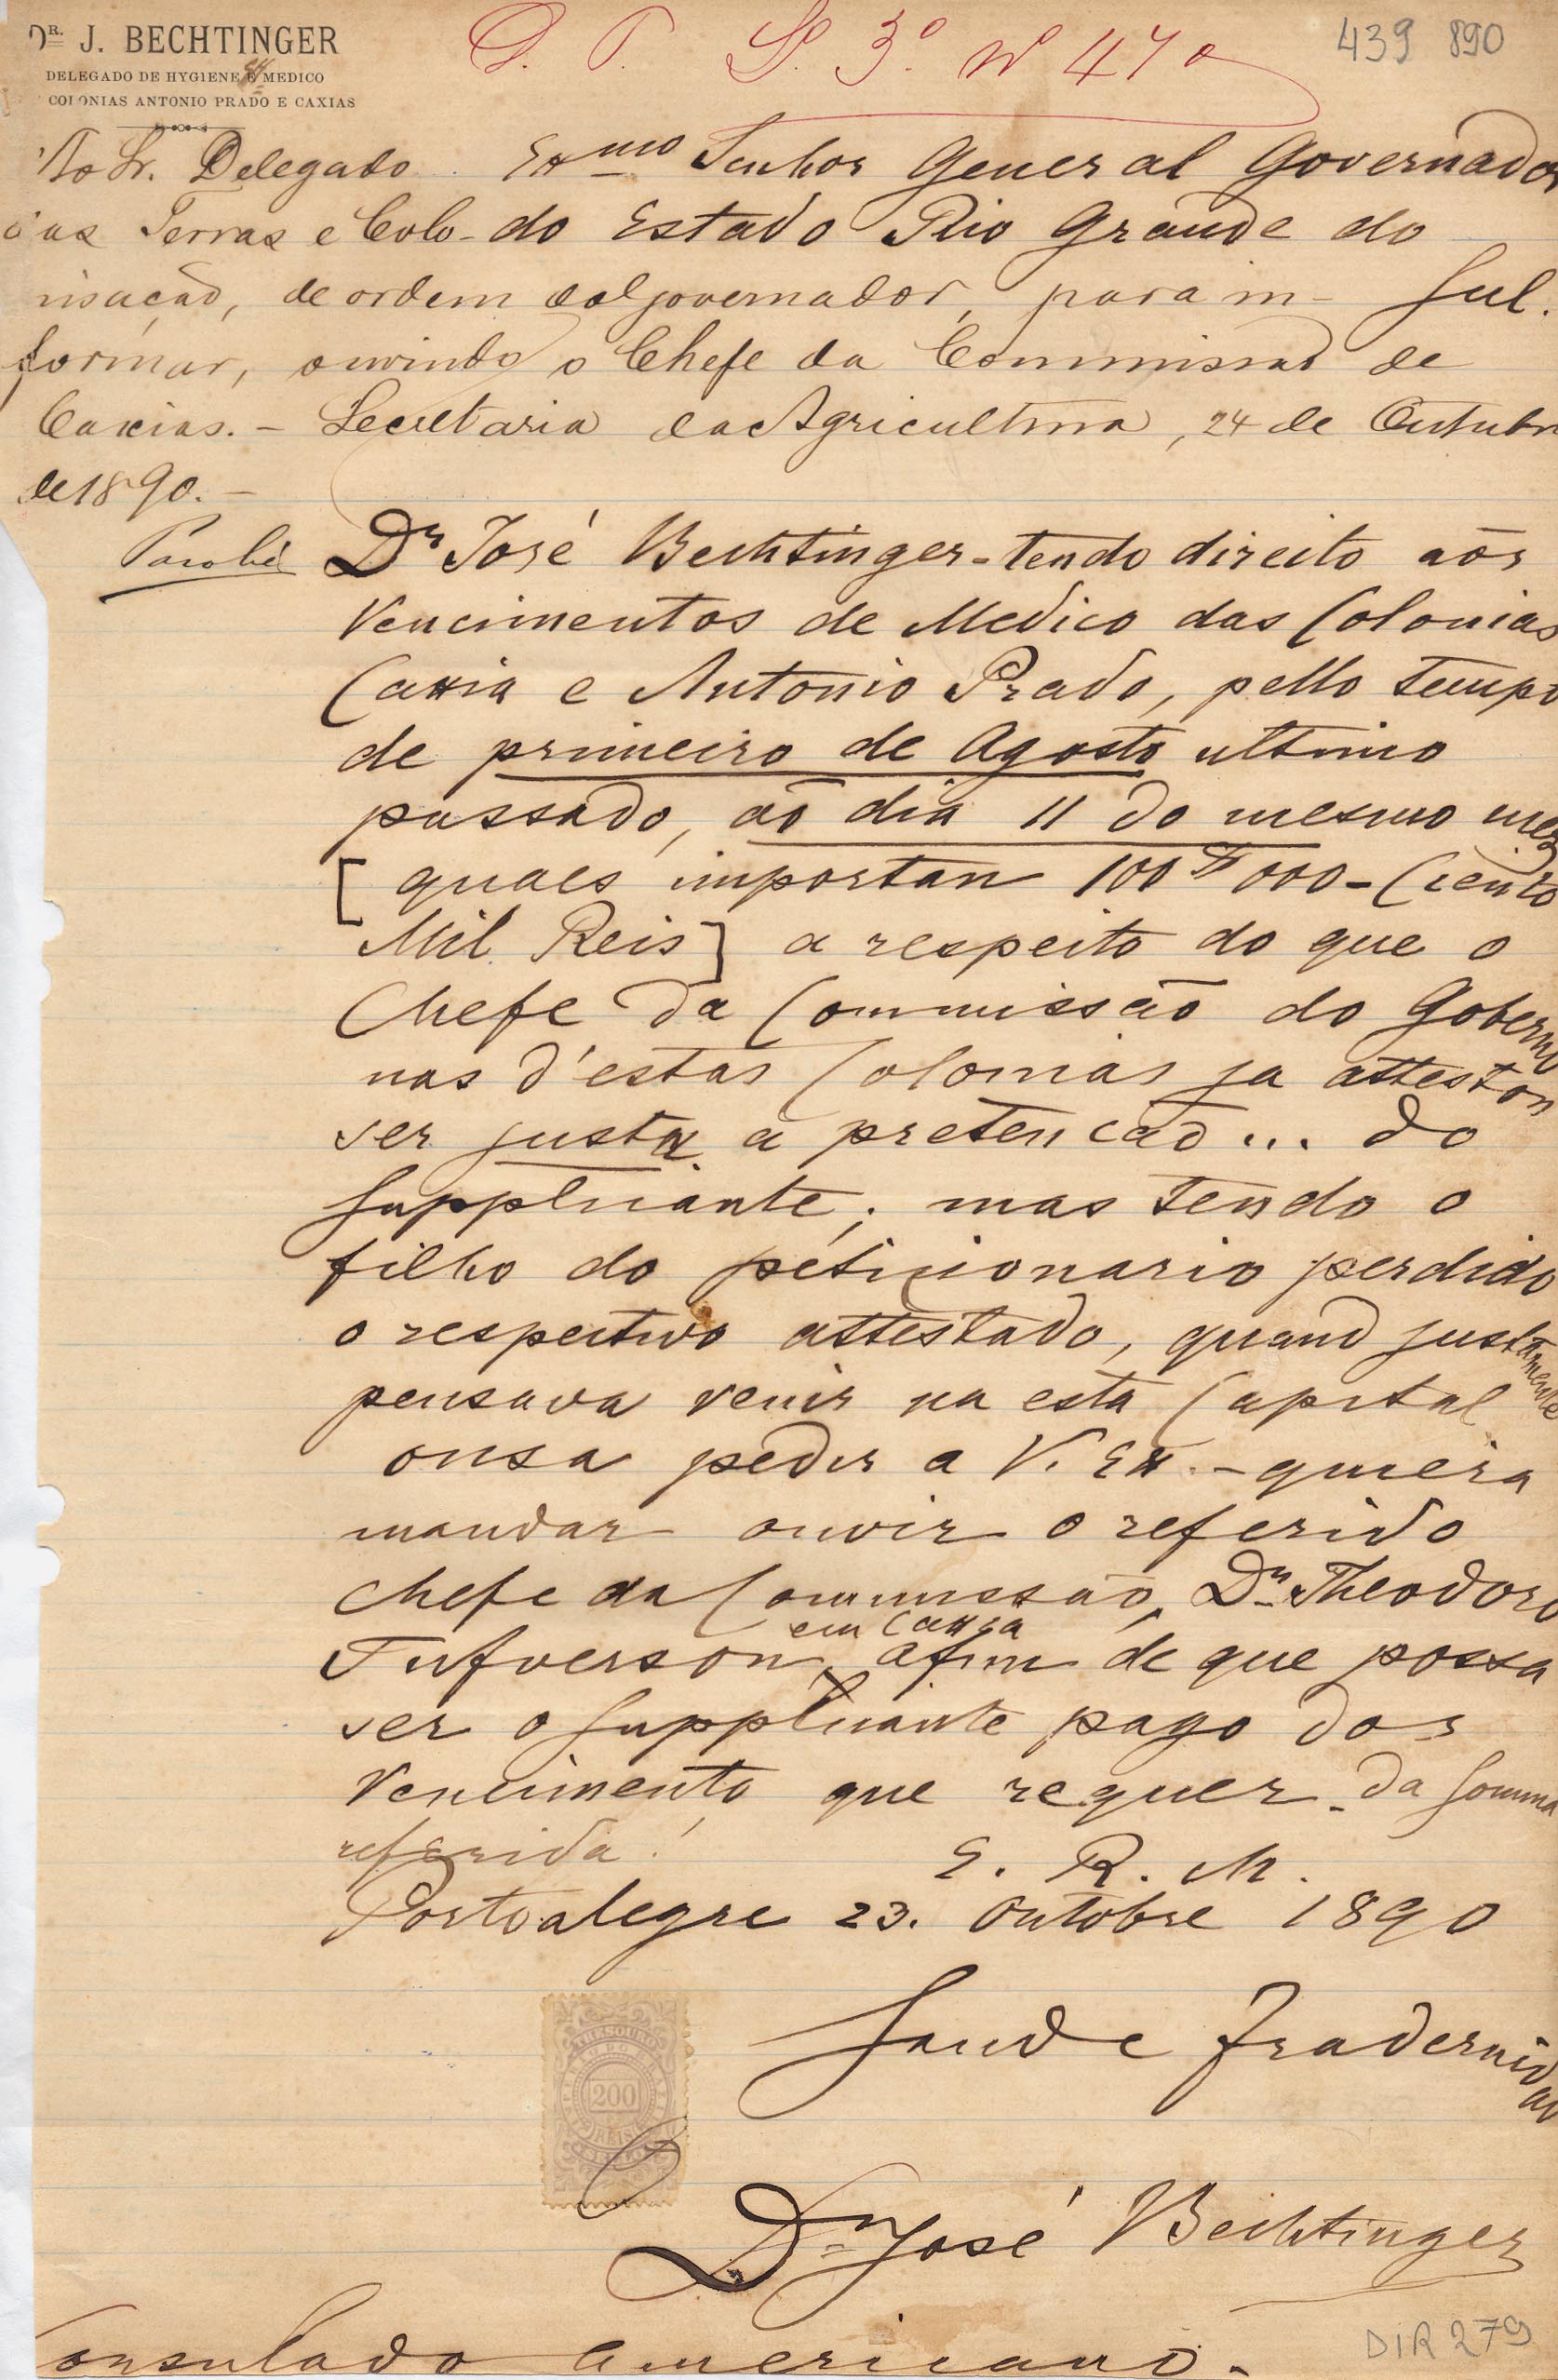 DR. J. BECHTINGER
DELEGADO DE HYGIENE E MEDICO
COLONIAS ANTONIO PRADO E CAXIAS
D. P. L.º 3.º Nº 470
439 890
Exmo Senhor General Governador
do Estado Rio Grande do
Sul.
Ao Sr. Delegado
das Terras e Colo-
nisação, de ordem do governador, para in-
formar, ouvindo o Chefe da Commissão de
Caxias. - Secretaria da Agricultura, 24 de Outubro
de 1890. -
Parobé
Dr José Bechtinger - tendo direito aōs
Vencimentos de Medico das Colonias
Caxia e Antonio Prado, pello tempo
de primeiro de Agosto ultimo
passado, aō dia 11 do mesmo mez
[quaes importan 100$000 - Ciento
Mil Reis] a respeito do que o
Chefe da Commissão do Goberno
nas d'estas Colonias ja attestou
ser justa a pretencão ... do
Suppliciante; mas tendo o
filho do peticionario perdido
o respectivo attestado, quand justamente
pensava venir na esta Capital
ousa pedir a V. Ex. - quiera
mandar ouvir o referido
Chefe da Commissão, Dr. Theodoro
Tufverson, em Caxia afim de que possa
ser o Suppliciante pago dos
Vencimento que requer - da Somma
referida!
E. R. M.
Portoalegre 23. Outobre 1890
Saude Fradernidad
THESOURO
200
REIS
Dr José Bechtinger
Consulado Americano.
DIR 279